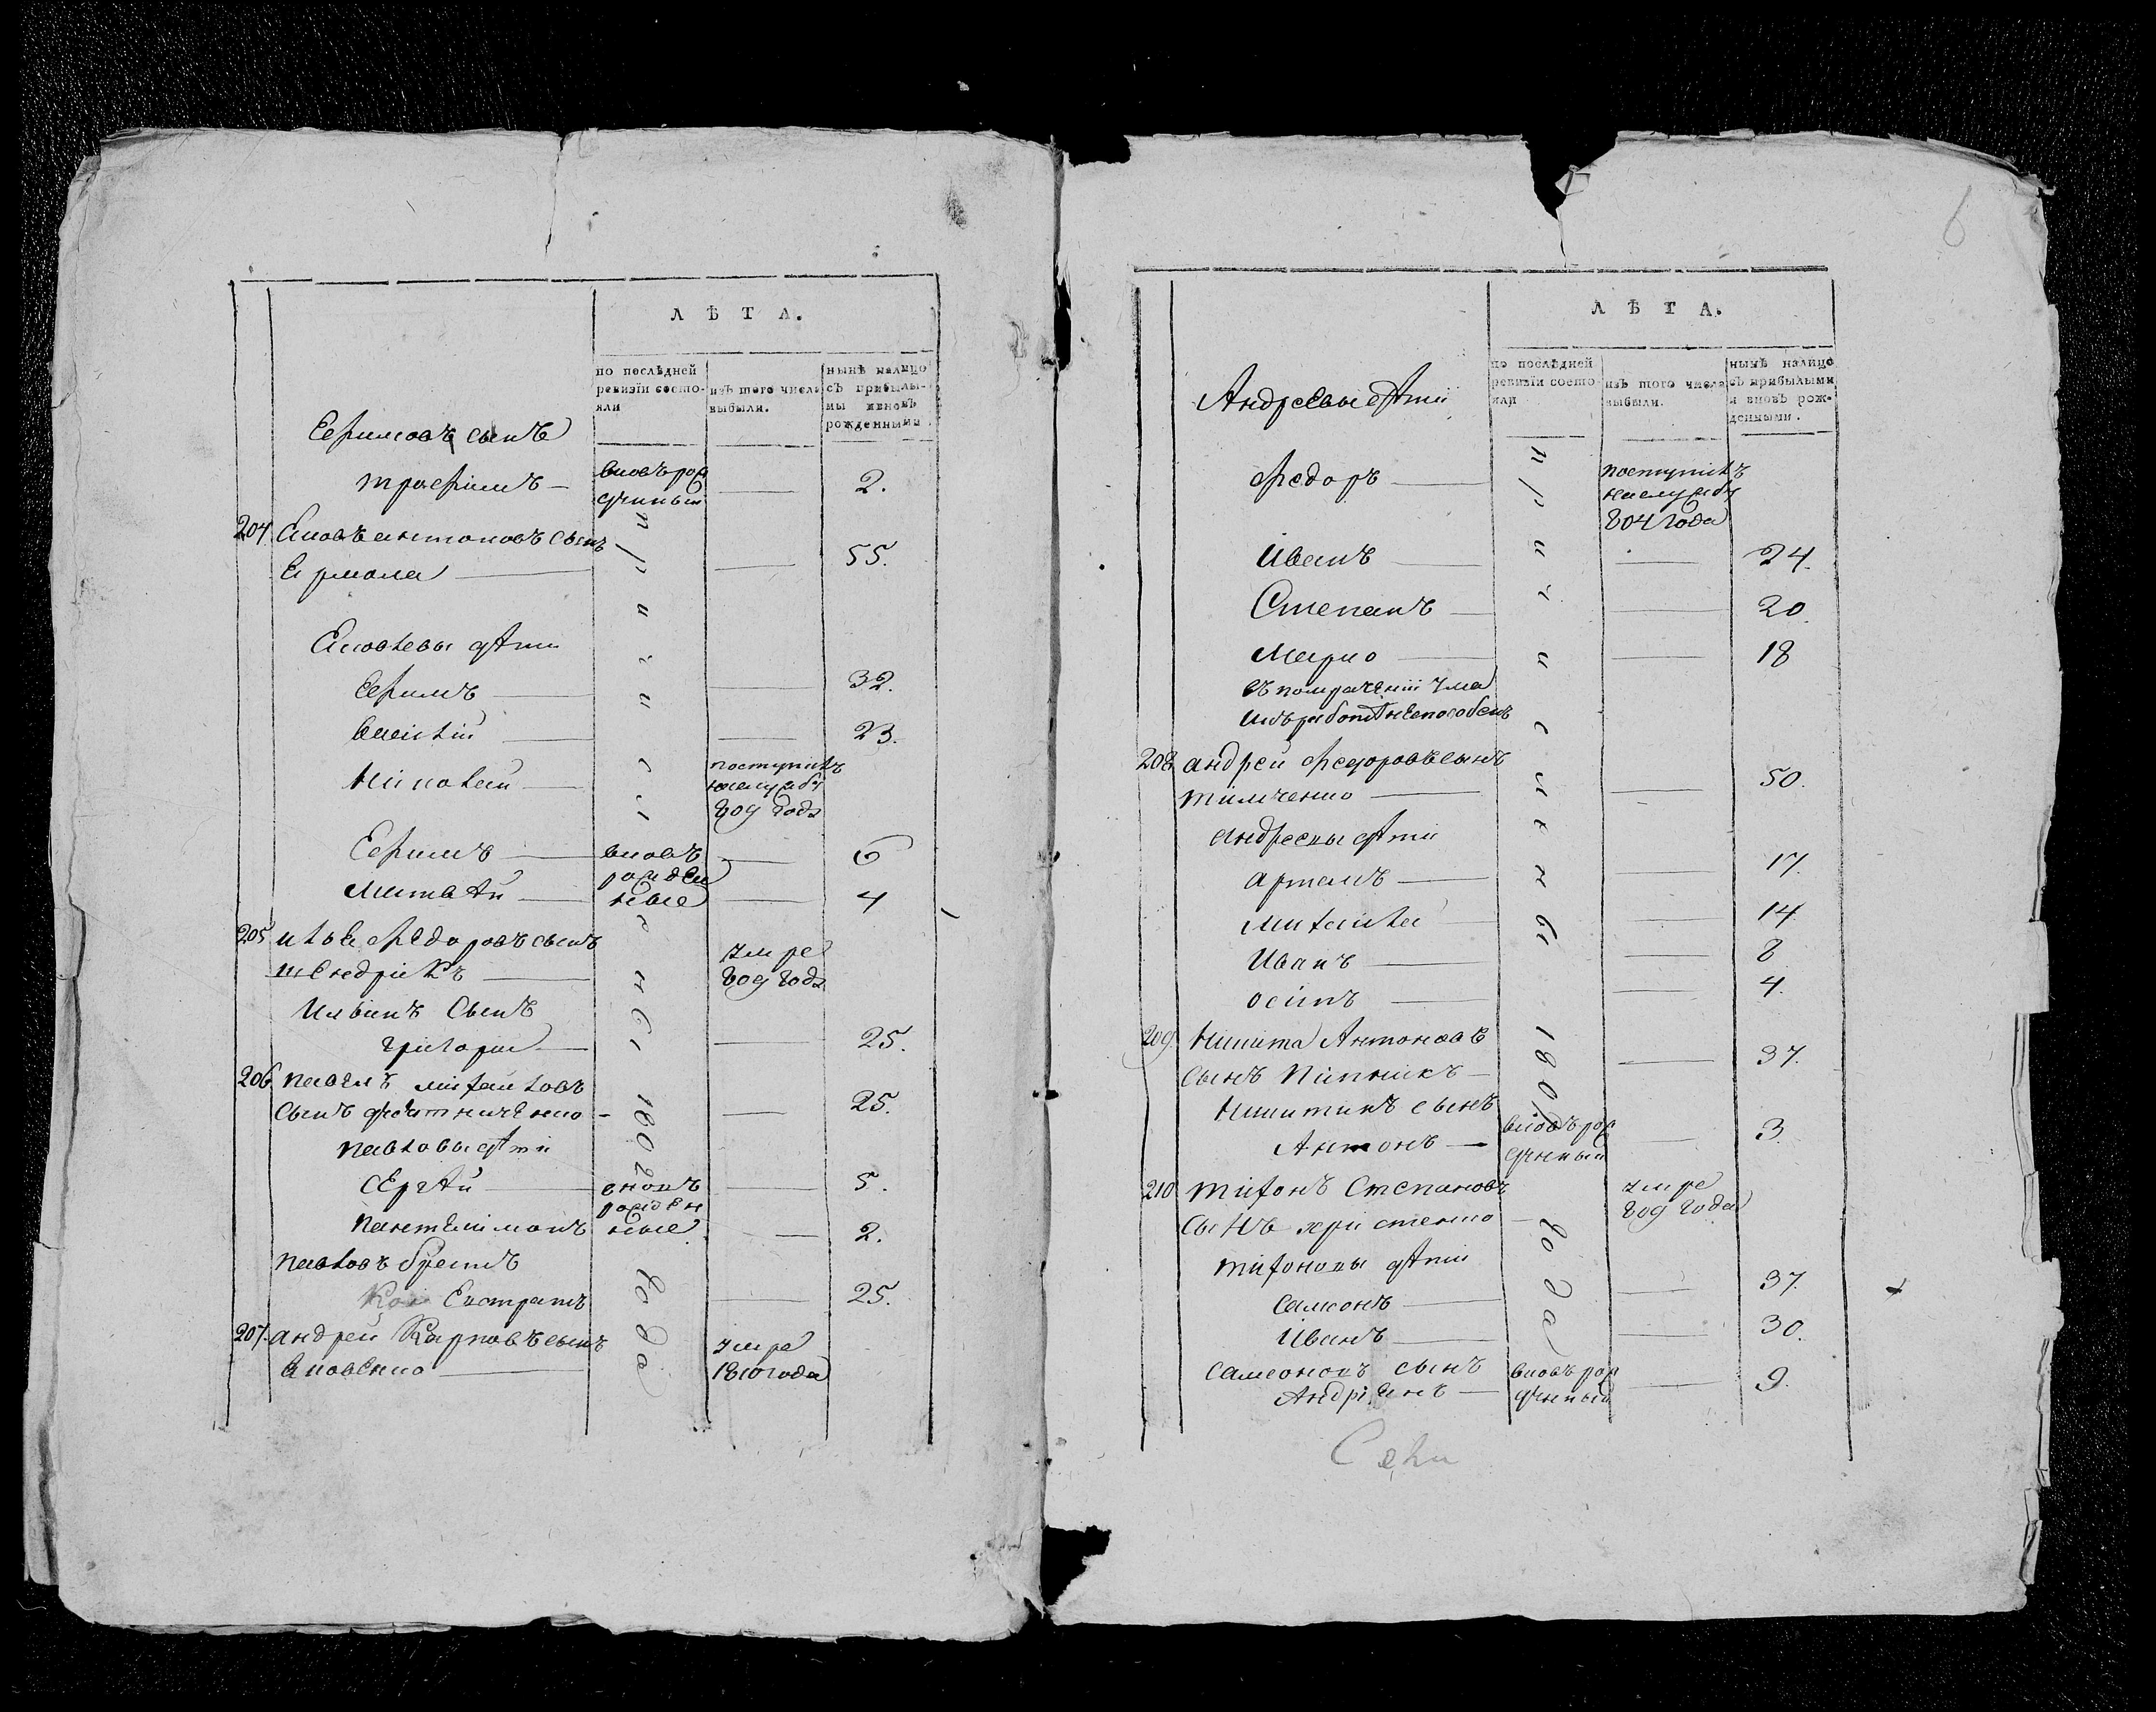 ЛѢТА.
по послѣдней ревизіи состояли
изъ того числа выбыли.
нынѣ налицо съ прибылыми и вновь рожденными.
Ефимовъ сынъ
трофимъ — вновь рож
денный — 2.
204 Яковъ антоновъ сынъ
Ермола — 55.
Яковлевы дѣти
Ефимъ — 32.
Василій — 23.
Николай — поступилъ
наслужбу
809 года
Ефимъ — вновь — 6
рожден
Матвѣй — ные — 4
205 илья Федоровъ сынъ
умре
809 года
Ильинъ Сынъ
григорій — 25.
206 павелъ михайловъ
Сынъ — 25.
павловы дѣти
Сергѣй — вновь — 5.
рожден
пантелимонъ ные — 2.
павловъ братъ
Евстратъ — 25.
207. андрей Карповъ сынъ
умре
Яковенко — 1810 года
причислены 1802 года
ЛѢТА.
по послѣдней ревизіи состояли
изъ того числа выбыли.
нынѣ налицо съ прибылыми и вновь рожденными.
6
Андреевы дѣти
Федоръ — поступилъ
наслужбу
804 года
Иванъ — 24.
Степанъ — 20.
Марко — 18
въ помраченіи ума
208 андрей Федоровъ сынъ
тимченко — 50.
андреевы дѣти
артемъ — 17.
михайла — 14
Иванъ — 8
осипъ — 4.
209. Никита Антоновъ
Сынъ — 37.
Никитинъ сынъ
вновь рож
Антонъ — 3.
денный
210 тихонъ Степановъ
умре
809 года
Сынъ христенко
тихоновы дѣти
Самсонъ — 37.
Иванъ — 30.
Самсоновъ сынъ вновь рож
Андріянъ — денный — 9.
причислены 1802 года